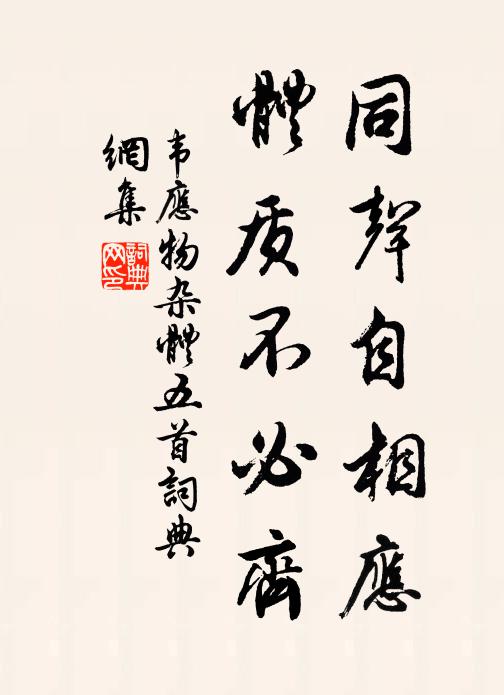 同聲自相應
體质不必齊
韦應物杂體五首詞典
網集
詞典
网印